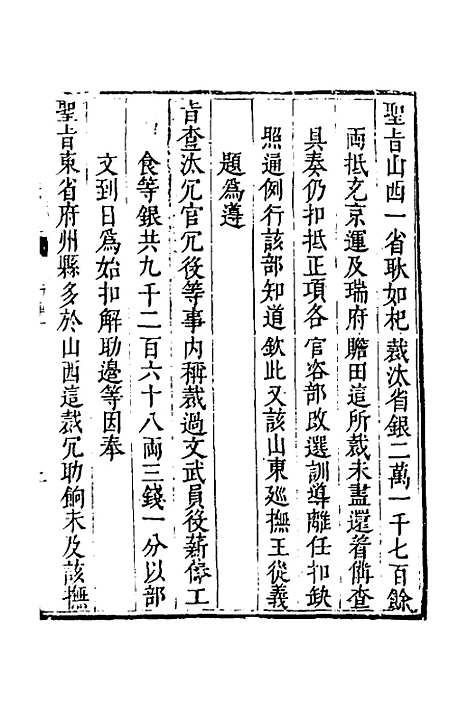 聖旨山西一省耿如杞裁汰省銀二萬一千七百餘
兩抵充京運及瑞府贍田這所裁未盡還着備查
具奏仍扣抵正項各官咨部改選訓導離任扣缺
照通例行該部知道欽此又該山東廵撫王從義
題為遵
旨查汰冗官冗役等事內稱裁過文武員役薪俸工
食等銀共九千二百六十八兩三錢一分以部
文到日為始扣解助邊等因奉
聖旨東省府州縣多於山西這裁冗助餉未及該撫